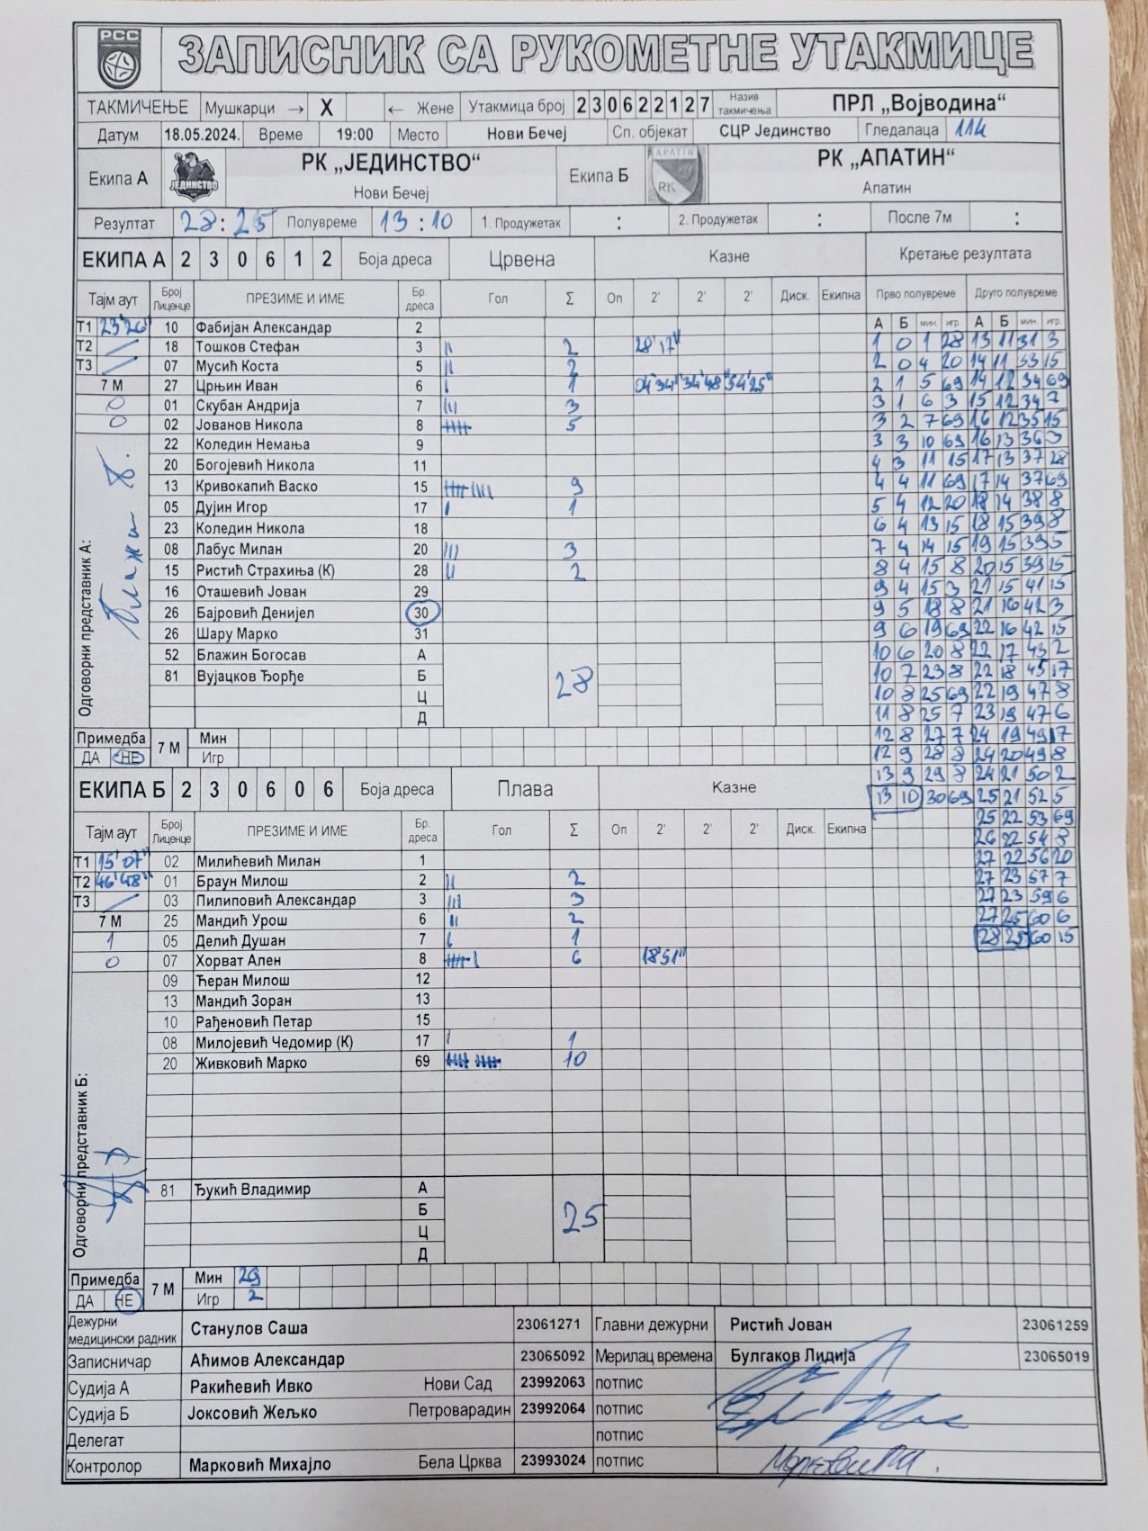 РСС
ЗАПИСНИК СА РУКОМЕТНЕ УТАКМИЦЕ
ТАКМИЧЕЊЕ Мушкарци → X ← Жене Утакмица број 2 3 0 6 2 2 1 2 7 Назив такмичења ПРЛ „Војводина“
Датум 18.05.2024. Време 19:00 Место Нови Бечеј Сп. објекат СЦР Јединство Гледалаца 114
Екипа А ЈЕДИНСТВО РК „ЈЕДИНСТВО“ Нови Бечеј Екипа Б АПАТИН RK РК „АПАТИН“ Апатин
Резултат 28:25 Полувреме 13:10 1. Продужетак : 2. Продужетак : После 7м :
ЕКИПА А 2 3 0 6 1 2 Боја дреса Црвена Казне Кретање резултата
Тајм аут Број Лиценце ПРЕЗИМЕ И ИМЕ Бр. дреса Гол Σ Оп 2' 2' 2' Диск. Екипна Прво полувреме Друго полувреме
А Б мин. игр. А Б мин. игр.
Т1 23'26" 10 Фабијан Александар 2
Т2 18 Тошков Стефан 3 || 2 28'17"
Т3 07 Мусић Коста 5 || 2
7 М 27 Црњин Иван 6 | 1 04'34" 34'48" 54'25"
0 01 Скубан Андрија 7 ||| 3
0 02 Јованов Никола 8 5
22 Коледин Немања 9
20 Богојевић Никола 11
13 Кривокапић Васко 15 9
05 Дујин Игор 17 | 1
23 Коледин Никола 18
08 Лабус Милан 20 ||| 3
15 Ристић Страхиња (К) 28 || 2
16 Оташевић Јован 29
26 Бајровић Денијел 30
26 Шару Марко 31
52 Блажин Богосав А
81 Вујацков Ђорђе Б 28
Ц
Д
Одговорни представник А:
1 0 1 28 13 11 31 3
2 0 4 20 14 11 33 15
2 1 5 69 14 12 34 69
3 1 6 3 15 12 34 7
3 2 7 69 16 12 35 15
3 3 10 69 16 13 36 3
4 3 11 15 17 13 37 28
4 4 11 69 17 14 37 69
5 4 12 20 18 14 38 8
6 4 13 15 18 15 39 8
7 4 14 15 19 15 39 5
8 4 15 8 20 15 39 15
9 4 15 3 21 15 41 15
9 5 18 8 21 16 42 3
9 6 19 69 22 16 42 15
10 6 20 8 22 17 43 2
10 7 23 8 22 18 45 17
10 8 25 69 22 19 47 8
11 8 25 7 23 19 47 6
12 8 27 7 24 19 49 17
12 9 28 8 24 20 49 8
13 9 29 8 24 21 50 2
13 10 30 69 25 21 52 5
25 22 53 69
26 22 54 8
27 22 56 20
27 23 57 7
27 23 59 6
27 25 60 6
28 25 60 15
Примедба ДА НЕ 7 М Мин
Игр
ЕКИПА Б 2 3 0 6 0 6 Боја дреса Плава Казне
Тајм аут Број Лиценце ПРЕЗИМЕ И ИМЕ Бр. дреса Гол Σ Оп 2' 2' 2' Диск. Екипна
Т1 15'07" 02 Милићевић Милан 1
Т2 46'48" 01 Браун Милош 2 || 2
Т3 03 Пилиповић Александар 3 ||| 3
7 М 25 Мандић Урош 6 || 2
1 05 Делић Душан 7 | 1
0 07 Хорват Ален 8 6 18'51"
09 Ћеран Милош 12
13 Мандић Зоран 13
10 Рађеновић Петар 15
08 Милојевић Чедомир (К) 17 | 1
20 Живковић Марко 69 10
81 Ђукић Владимир А
Б 25
Ц
Д
Одговорни представник Б:
Примедба ДА НЕ 7 М Мин 29
Игр 2
Дежурни медицински радник Станулов Саша 23061271 Главни дежурни Ристић Јован 23061259
Записничар Аћимов Александар 23065092 Мерилац времена Булгаков Лидија 23065019
Судија А Ракићевић Ивко Нови Сад 23992063 потпис
Судија Б Јоксовић Жељко Петроварадин 23992064 потпис
Делегат потпис
Контролор Марковић Михајло Бела Црква 23993024 потпис